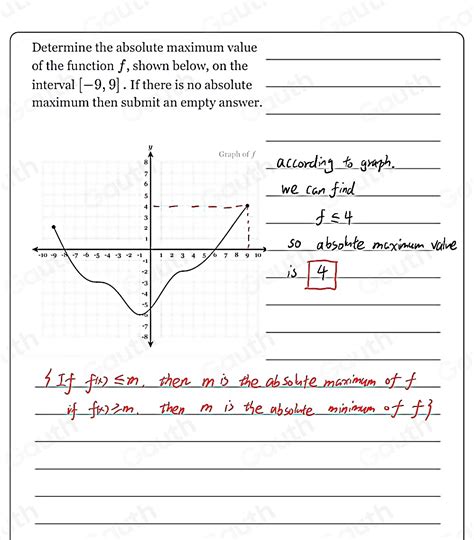 Determine the absolute maximum value
of the function f, shown below, on the
interval [−9, 9]. If there is no absolute
maximum then submit an empty answer.
y
Graph of f
8
7
6
5
4
3
2
1
-10 -9 -8 -7 -6 -5 -4 -3 -2 -1 1 2 3 4 5 6 7 8 9 10
-1
-2
-3
-4
-5
-6
-7
-8
according to graph.
we can find
f ≤ 4
so absolute maximum value
is 4
{ If f(x) ≤ m, then m is the absolute maximum of f
if f(x) ≥ m, then m is the absolute minimum of f }
Gauth